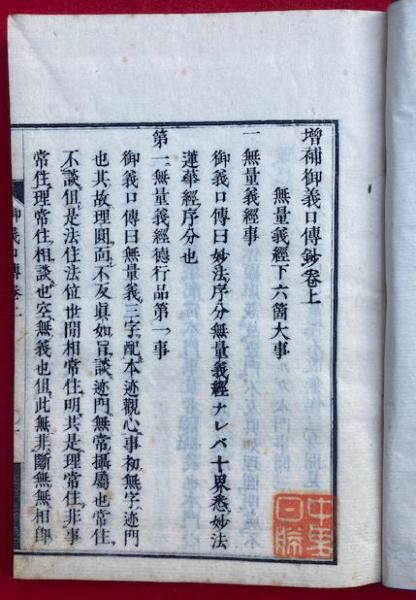 增補御義口傳鈔卷上
無量義經下六箇大事
一 無量義經事
御義口傳曰妙法序分無量義經ナレバ十界悉妙法
蓮華經序分也
第一無量義經德行品第一事
御義口傳曰無量義三字配本迹觀心事初無字迹門
也其故理圓而不友眞如旨談迹門無常攝屬也常住
不談但是法住法位世間相常住明共是理常住非事
常住理常住相談也空無義也但此無非斷無無相卽
御義口傳卷上